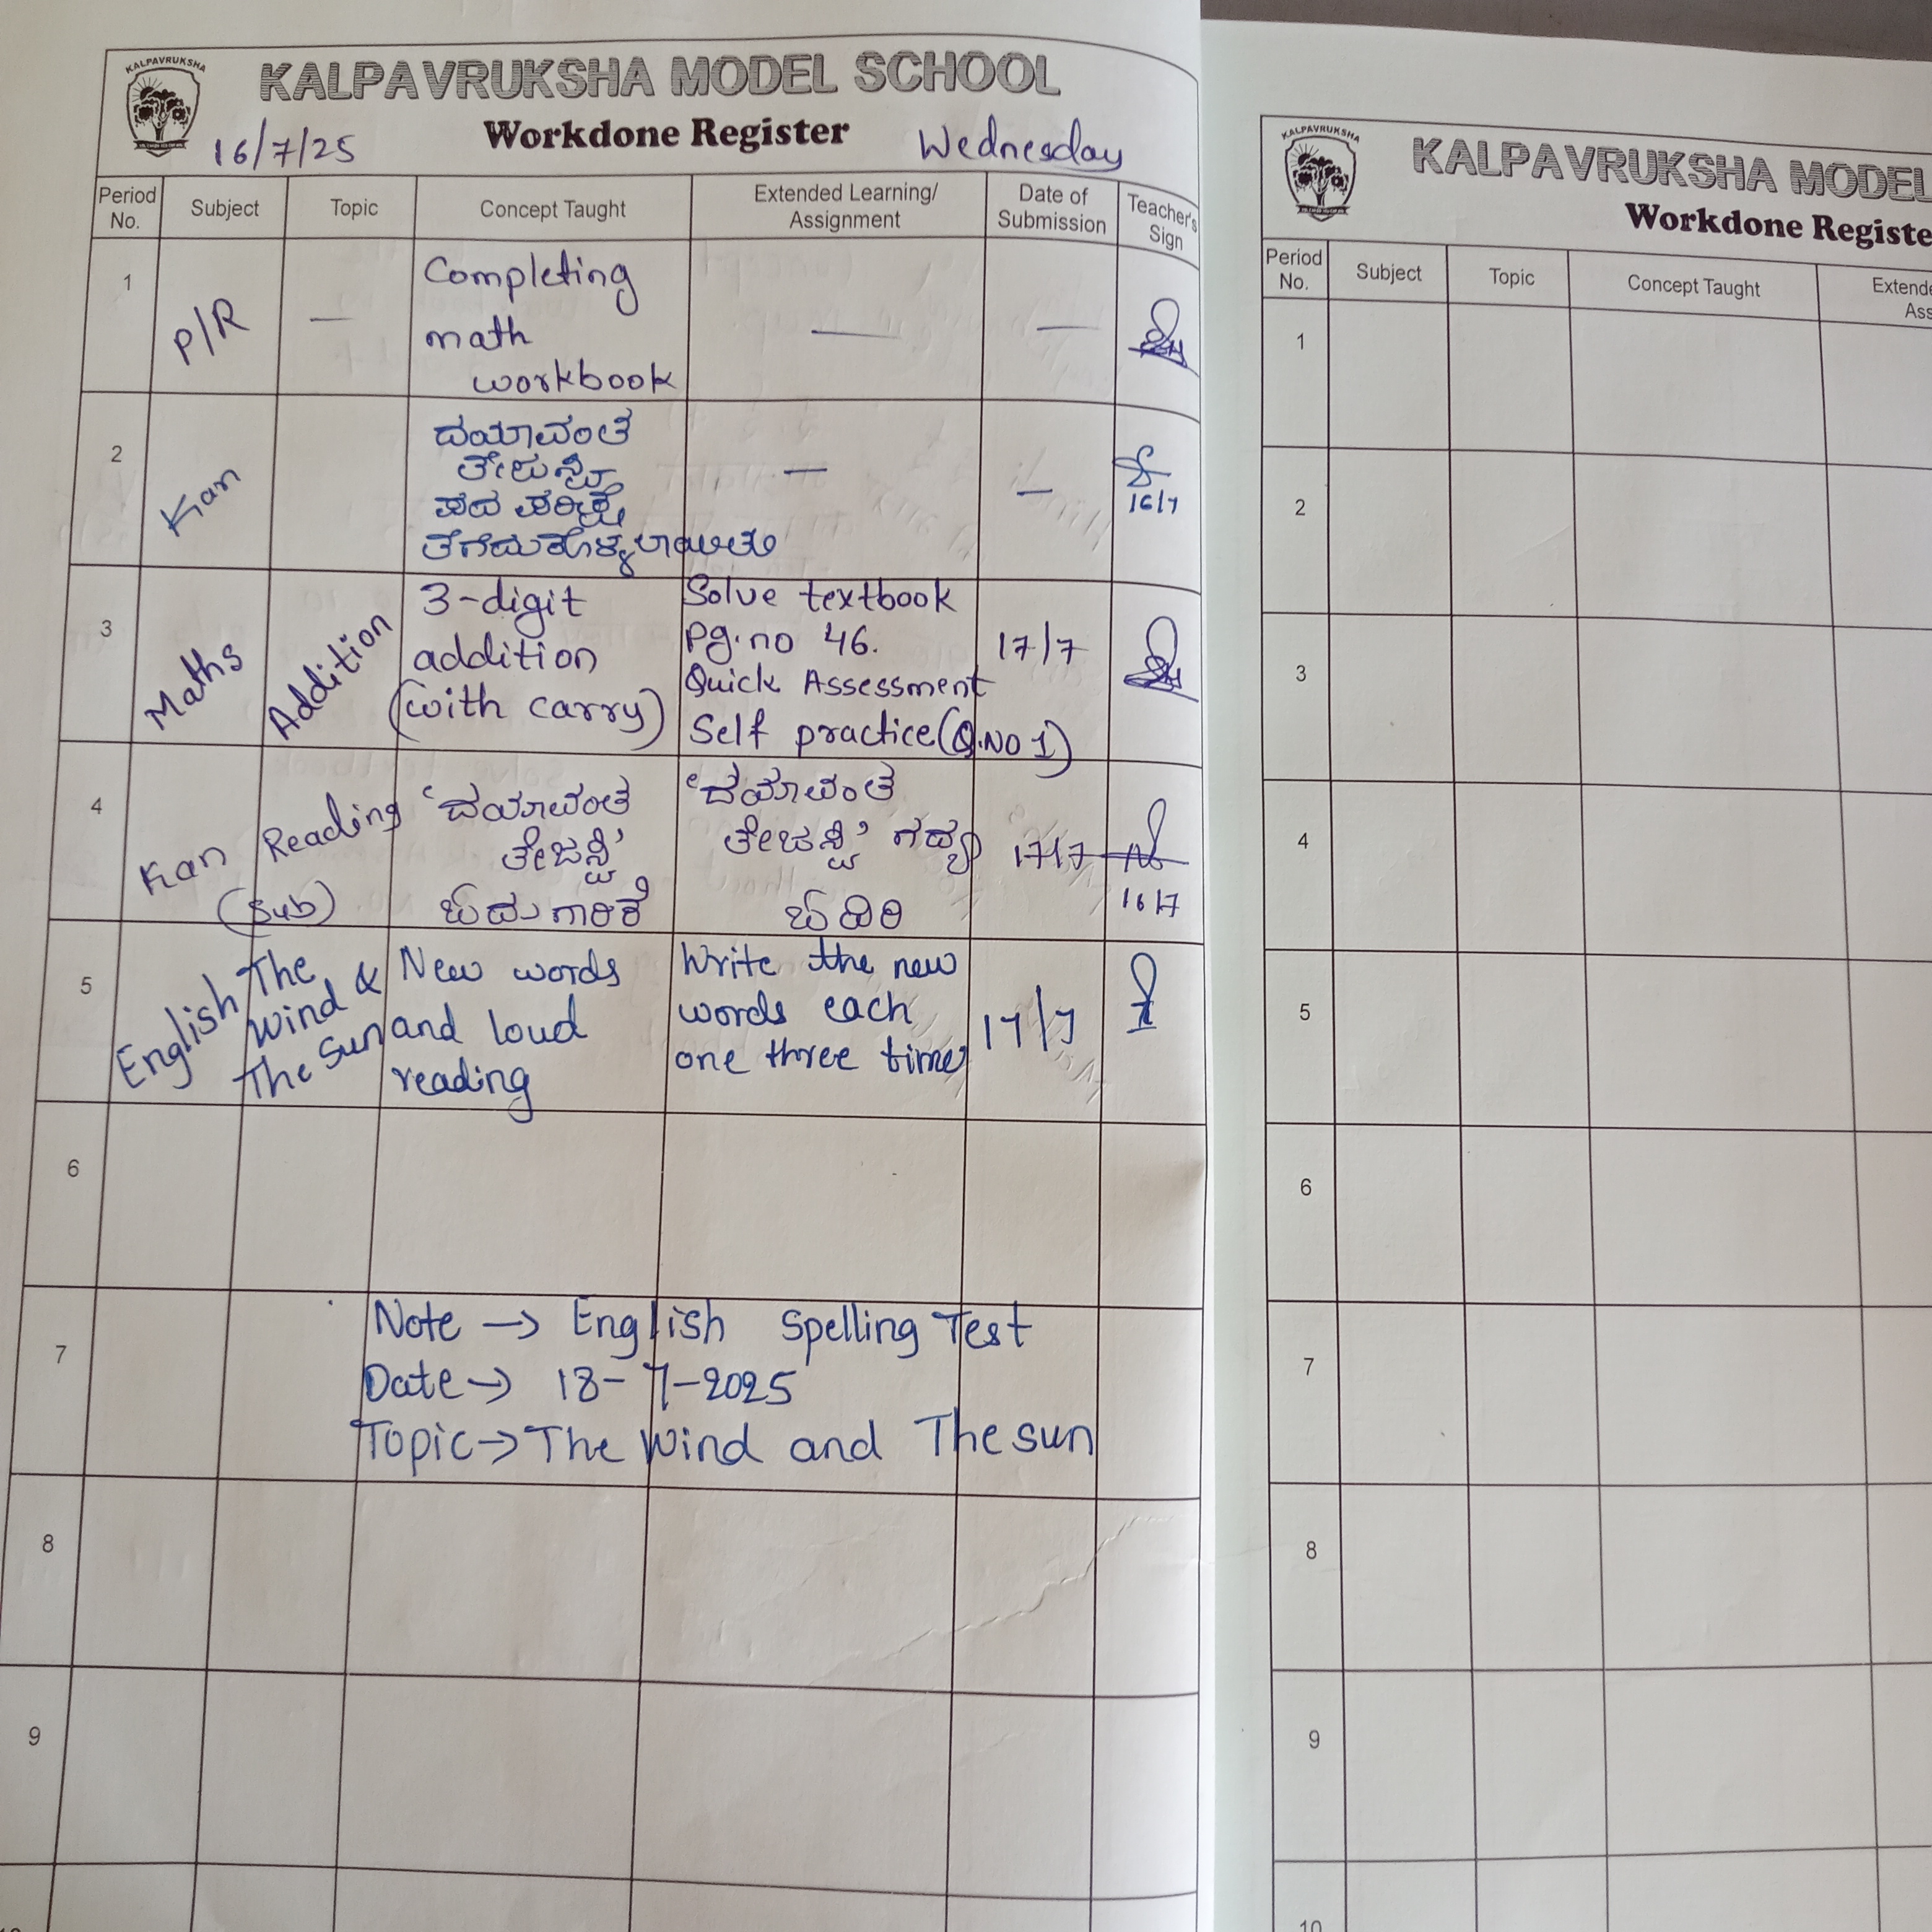 KALPAVRUKSHA
KALPAVRUKSHA MODEL SCHOOL
16/7/25 Workdone Register Wednesday
Period No. Subject Topic Concept Taught Extended Learning/ Assignment Date of Submission Teacher's Sign
1 P/R — Completing — —
math
workbook
2 Kan ದಯಾವಂತ — — 16/7
ತೇಜಸ್ವಿ
ಪದ ಪರೀಕ್ಷೆ
ತೆಗೆದುಕೊಳ್ಳಲಾಯಿತು
3 Maths Addition 3-digit Solve textbook
addition Pg.no 46. 17/7
(with carry) Quick Assessment
Self practice (Q.NO 1)
4 Kan (Sub) Reading ‘ದಯಾವಂತ ‘ದಯಾವಂತ
ತೇಜಸ್ವಿ’ ತೇಜಸ್ವಿ’ ಗದ್ಯ 17/7
ಓದುಗಾರಿಕೆ ಓದಿರಿ 16/7
5 English The New words Write the new
Wind & and loud words each 17/7
The Sun reading one three time
6
7 Note → English Spelling Test
Date → 18-7-2025
Topic → The Wind and The sun
8
9
KALPAVRUKSHA
KALPAVRUKSHA MODEL
Workdone Registe
Period No. Subject Topic Concept Taught Extende
Ass
1
2
3
4
5
6
7
8
9
10